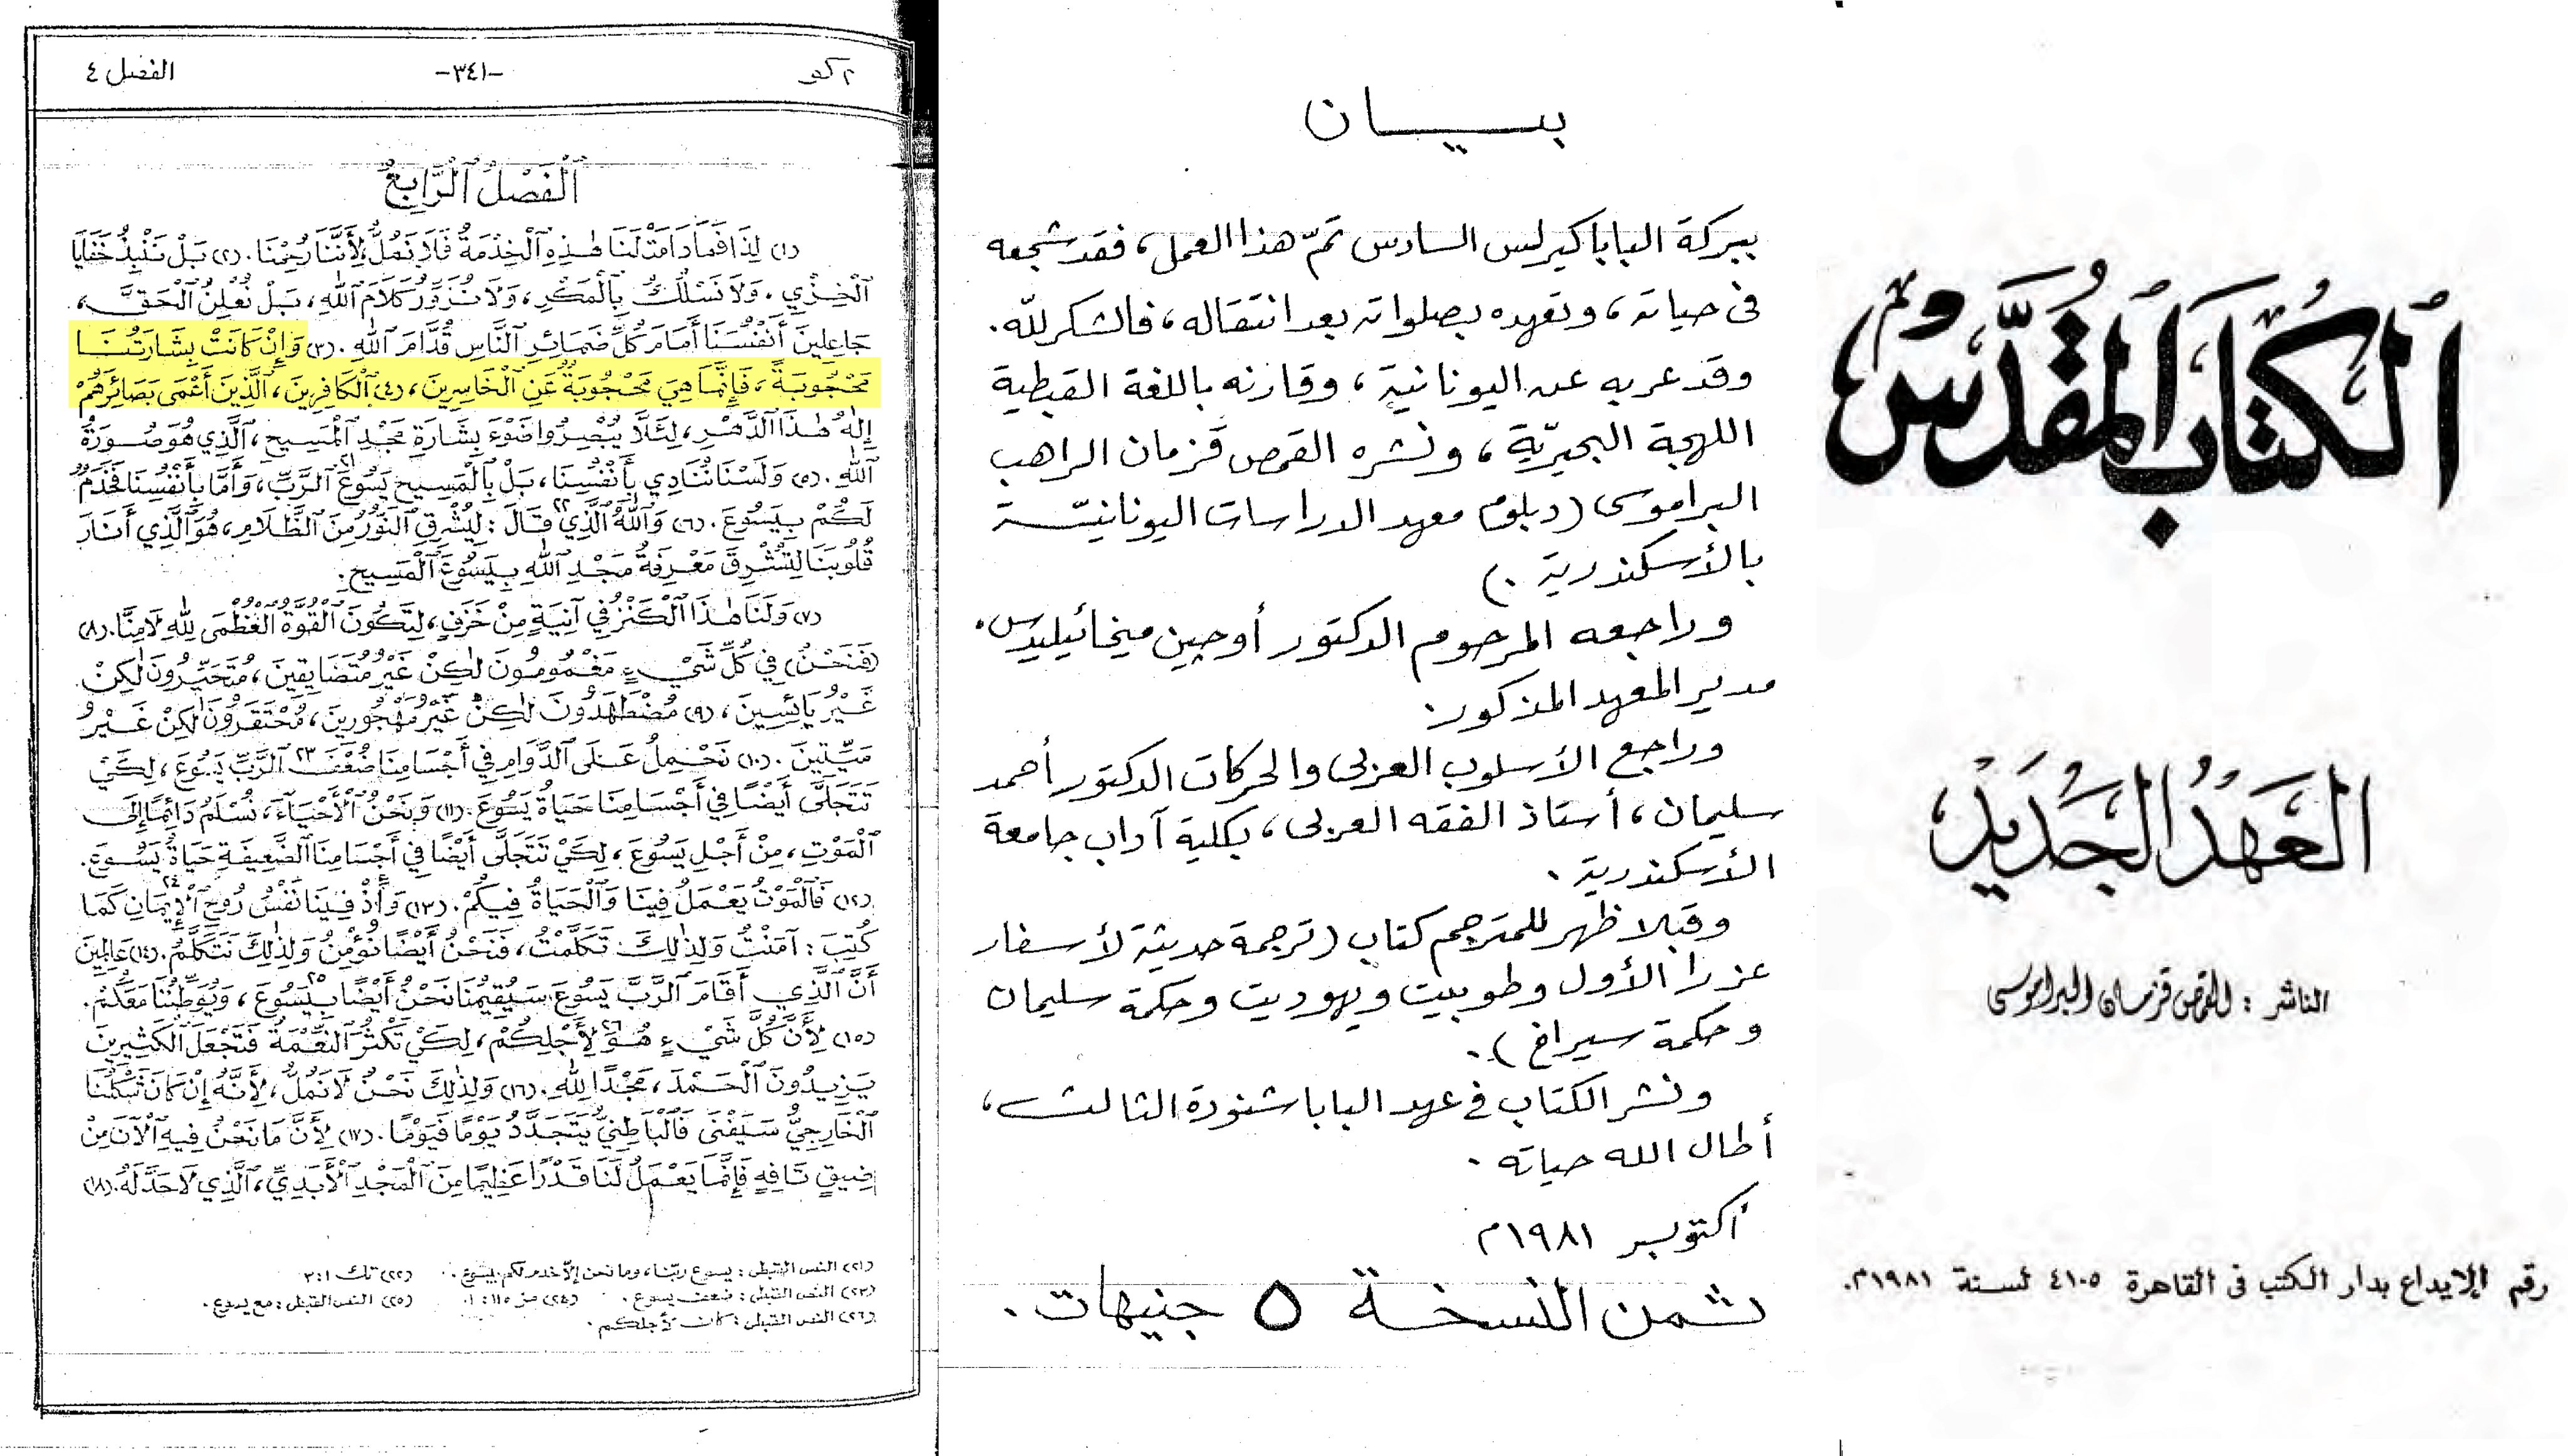 الكتاب المقدس
العهد الجديد
الناشر : القمص قزمان البراموسى
رقم الإيداع بدار الكتب فى القاهرة ٤١٠٥ لسنة ١٩٨١م.
بيــــان
ببركة البابا كيرلس السادس تمّ هذا العمل، فقد شجعه
فى حياته، وتعهده بصلواته بعد انتقاله، فالشكر للّه.
وقد عربه عن اليونانية، وقارنه باللغة القبطية
اللهجة البحيريّة، ونشره القمص قزمان الراهب
البراموسى (دبلوم معهد الدراسات اليونانيّــة
بالأسكندرية.)
وراجعه المرحوم الدكتور أوجين ميخائيليدس.
مدير المعهد المذكور.
وراجع الأسلوب العربى والحركات الدكتور أحمد
سليمان، أستاذ الفقه العربى، بكلية آداب جامعة
الأسكندرية.
وقبلا ظهر للمترجم كتاب (ترجمة حديثة لأسفار
عزرا الأول وطوبيت ويهوديت وحكمة سليمان
وحكمة سيراخ).
ونشر الكتاب فى عهد البابا شنودة الثالث،
أطال الله حياته.
أكتوبر ١٩٨١م
ثمن النسخة ٥ جنيهات.
٢ كور -٣٤١- الفصل ٤
اَلْفَصْلُ اَلرَّابِعُ
(١) لِذَا فَمَا دَامَتْ لَنَا هٰذِهِ اَلْخِدْمَةُ فَلَا نَمَلُّ، لِأَنَّنَا رُحِمْنَا. (٢) بَلْ نَنْبِذُ خَفَايَا
اَلْخِزْيِ، وَلَا نَسْلُكُ بِالْمَكْرِ، وَلَا نُزَوِّرُ كَلَامَ اَللّٰهِ، بَلْ نُعْلِنُ اَلْحَقَّ،
جَاعِلِينَ أَنْفُسَنَا أَمَامَ كُلِّ ضَمَائِرِ اَلنَّاسِ قُدَّامَ اَللّٰهِ. (٣) وَإِنْ كَانَتْ بِشَارَتُنَا
مَحْجُوبَةً، فَإِنَّمَا هِيَ مَحْجُوبَةٌ عَنِ اَلْخَاسِرِينَ، (٤) اَلْكَافِرِينَ، اَلَّذِينَ أَعْمَى بَصَائِرَهُمْ
إِلٰهُ هٰذَا اَلدَّهْرِ، لِئَلَّا يُبْصِرُوا ضَوْءَ بِشَارَةِ مَجْدِ اَلْمَسِيحِ، اَلَّذِي هُوَ صُورَةُ
اَللّٰهِ. (٥) وَلَسْنَا نُنَادِي بِأَنْفُسِنَا، بَلْ بِالْمَسِيحِ يَسُوعَ اَلرَّبِّ،٢١ وَأَمَّا بِأَنْفُسِنَا فَخَدَمٌ
لَكُمْ بِيَسُوعَ. (٦) وَاَللّٰهُ اَلَّذِي قَالَ٢٢: لِيُشْرِقِ اَلنُّورُ مِنَ اَلظَّلَامِ، هُوَ اَلَّذِي أَنَارَ
قُلُوبَنَا لِتُشْرِقَ مَعْرِفَةُ مَجْدِ اَللّٰهِ بِيَسُوعَ اَلْمَسِيحِ.
(٧) وَلَنَا هٰذَا اَلْكَنْزُ فِي آنِيَةٍ مِنْ خَزَفٍ، لِتَكُونَ اَلْقُوَّةُ اَلْعُظْمَى لِلّٰهِ لَا مِنَّا. (٨)
(فَنَحْنُ) فِي كُلِّ شَيْءٍ مَغْمُومُونَ لٰكِنْ غَيْرُ مُتَضَايِقِينَ، مُتَحَيِّرُونَ لٰكِنْ
غَيْرُ يَائِسِينَ، (٩) مُضْطَهَدُونَ لٰكِنْ غَيْرُ مَهْجُورِينَ، مُحْتَقَرُونَ لٰكِنْ غَيْرُ
مَيِّتِينَ. (١٠) نَحْمِلُ عَلَى اَلدَّوَامِ فِي أَجْسَامِنَا ضُعْفَ٢٣ اَلرَّبِّ يَسُوعَ، لِكَيْ
تَتَجَلَّى أَيْضًا فِي أَجْسَامِنَا حَيَاةُ يَسُوعَ. (١١) وَنَحْنُ اَلْأَحْيَاءَ، نُسْلَمُ دَائِمًا إِلَى
اَلْمَوْتِ، مِنْ أَجْلِ يَسُوعَ، لِكَيْ تَتَجَلَّى أَيْضًا فِي أَجْسَامِنَا اَلضَّعِيفَةِ حَيَاةُ يَسُوعَ.
(١٢) فَالْمَوْتُ يَعْمَلُ فِينَا وَاَلْحَيَاةُ فِيكُمْ. (١٣) وَإِذْ فِينَا نَفْسُ رُوحِ اَلْإِيمَانِ٢٤ كَمَا
كُتِبَ: آمَنْتُ وَلِذٰلِكَ تَكَلَّمْتُ، فَنَحْنُ أَيْضًا نُؤْمِنُ وَلِذٰلِكَ نَتَكَلَّمُ. (١٤) عَالِمِينَ
أَنَّ اَلَّذِي أَقَامَ اَلرَّبَّ يَسُوعَ سَيُقِيمُنَا نَحْنُ أَيْضًا بِيَسُوعَ٢٥، وَيُوَطِّنُنَا مَعَكُمْ.
(١٥) لِأَنَّ كُلَّ شَيْءٍ هُوَ٢٦ لِأَجْلِكُمْ، لِكَيْ تَكْثُرَ اَلنِّعْمَةُ فَتَجْعَلَ اَلْكَثِيرِينَ
يَزِيدُونَ اَلْحَمْدَ، مَجْدًا لِلّٰهِ. (١٦) وَلِذٰلِكَ نَحْنُ لَا نَمَلُّ، لِأَنَّهُ إِنْ كَانَ شَكْلُنَا
اَلْخَارِجِيُّ سَيَفْنَى فَالْبَاطِنِيُّ يَتَجَدَّدُ يَوْمًا فَيَوْمًا. (١٧) لِأَنَّ مَا نَحْنُ فِيهِ اَلْآنَ مِنْ
ضِيقٍ تَافِهٍ فَإِنَّمَا يَعْمَلُ لَنَا قَدْرًا عَظِيمًا مِنَ اَلْمَجْدِ اَلْأَبَدِيِّ، اَلَّذِي لَا حَدَّ لَهُ. (١٨)
(٢١) النص القبطى: يسوع ربّنا، وما نحن إلاّ خدم لكم بيسوع. (٢٢) تك ١:٣
(٢٣) النص القبطى: ضعف يسوع. (٢٤) مز ١١٥: ١٠ (٢٥) النص القبطى: مع يسوع.
(٢٦) النص القبطى: كان لأجلكم.